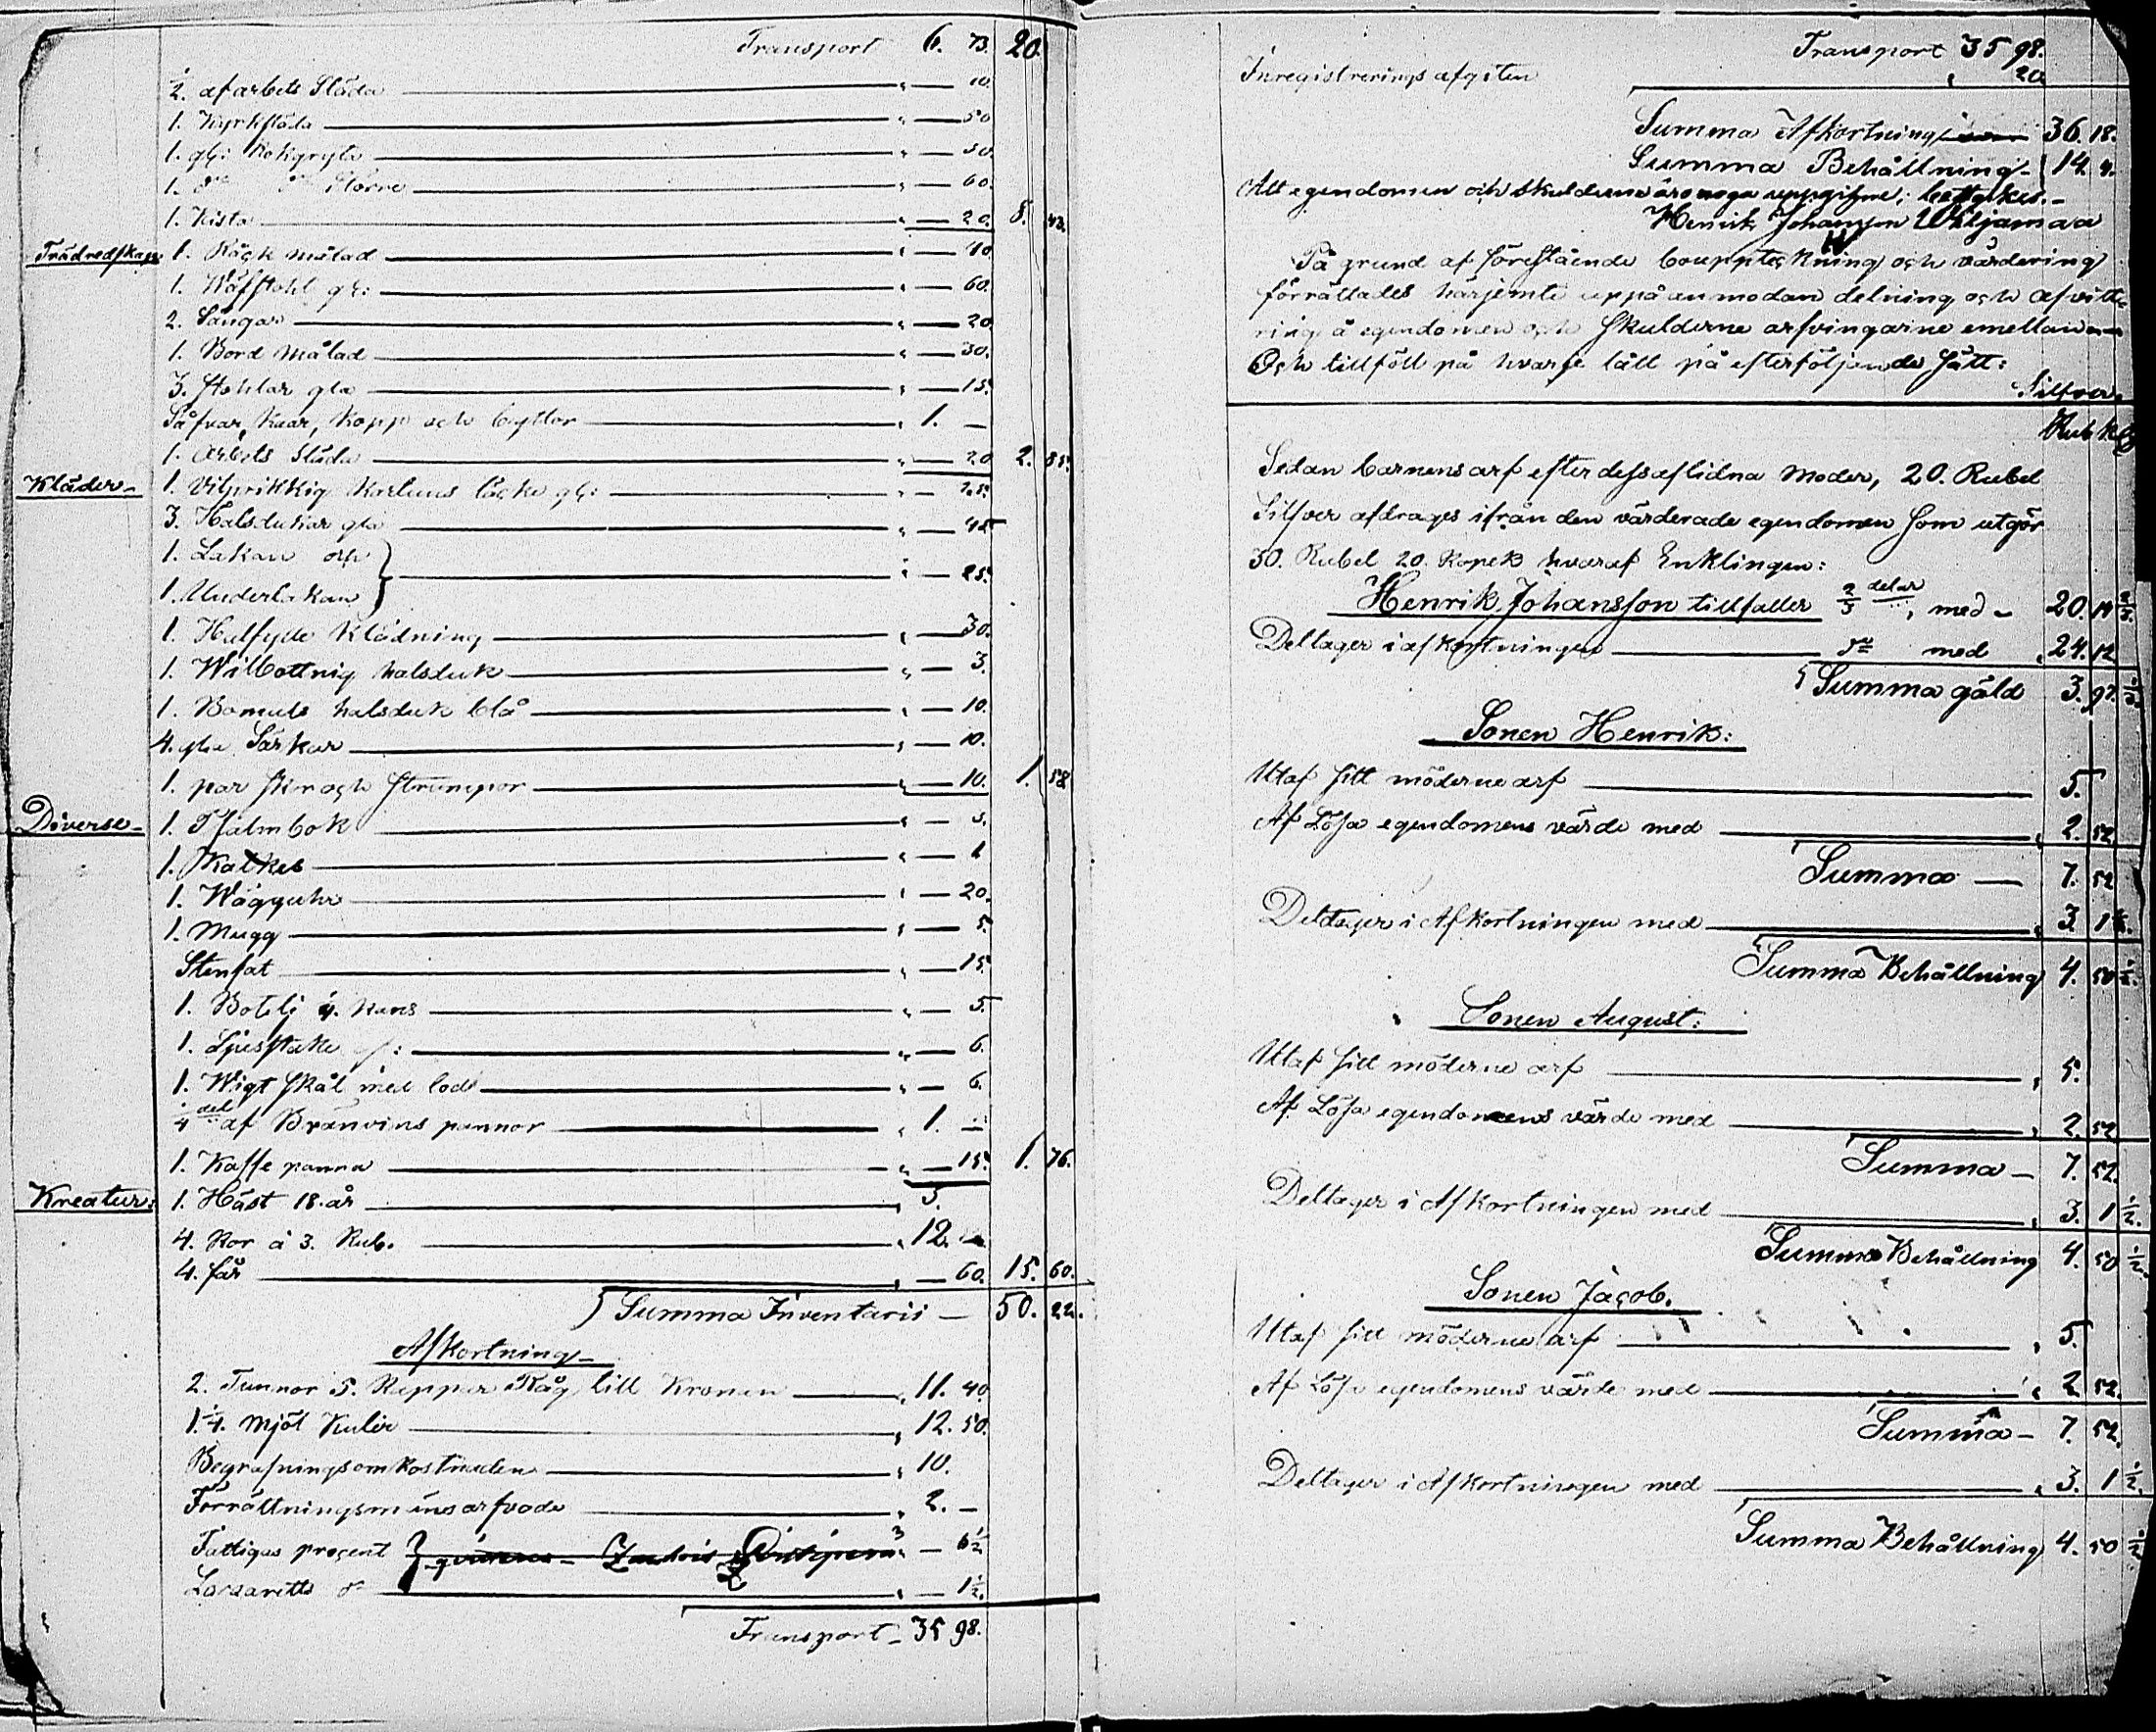 Transport 6. 73. 20.
½. af arbets Släda „ — 10.
1. Kyrksläda „ — 50
1. gl: Kokgryta „ — 30.
1. d:o d:o Större „ — 60.
1. Kista „ — 20. 8. 43.
Trädredskap 1. Räck målad „ — 40
1. Wäfstohl gl: „ — 60.
2. Sängar „ — 20
1. Bord målad „ — 30.
3. stohlar gla „ — 15.
Såfvar, Kaar, Kopp och byttor „ 1. —
1. Arbets Släda „ — 20 2. 85.
Kläder 1. Vitprikkig Kartuns gl: „ — 25.
3. Halsdukar gla „ — 45
1. Lakan och
1. Underlakan „ — 25.
1. Halfylle Klädning „ — 30.
1. Wilbottnig halsduk „ — 3.
1. Bomuls halsduk blå „ — 10.
4. gla Särkar „ — 10.
1. par skor och strumpor „ — 10. 1. 58
Diverse 1. Psalmbok „ — 3.
1. „ — 1
1. Wägguhr „ — 20.
1. Mugg „ — 5.
Stenfat „ — 15.
1. Botelj ¼. Kans „ — 5.
1. Ljusstake gl: „ — 6.
1. Wigt skål med lod „ — 6.
¼ del af Bränvins pannor „ 1. —
1. Kaffe panna „ — 15. 1. 76.
Kreatur: 1. Häst 18. år „ 3.
4. Kor à 3. Rub. „ 12. —
4. får „ — 60. 15. 60.
Summa Inventarii — 50. 22.
Afkortning
2. Tunnor 5. Kappar Råg till Kronan „ 11. 40.
1¼. Mjöl Kuler „ 12. 50.
Begrafningsomkostnaden „ 10.
Förrättningsmäns arfvode „ 2. —
Fattigas proçent — 6½
Lazaretts d:o „ — 1½.
Transport — 35 98.
Transport 35 98.
Inregistrerings afgiten „ 20
Summa Afkortning 36. 18.
Summa Behållning 14 4.
Att egendomen och skulderne äro noga uppgifne; bettyckes. —
Henrik Johansson
På grund af förestående bouppteckning och värdering
förrättades härjemte uppå anmodan delning och afvitt-
ring å egendomen och skulderne arfvingarine emellan —
Och tillföll på hvarje lått på efterföljande sätt:
Silfver.
Rub K
Sedan barnens arf efter dess aflidna Moder, 20. Rubel
Silfver afdrages ifrån den värderade egendomen som utgör
30. Rubel 20. Kopek hvaraf Enklingen:
Henrik Johansson tillfaller ⅔ delar, med — 20. 14 ⅔.
Deltager i afkortningen d:o med „ 24. 12
Summa gäld 3. 97. ⅓.
Sonen Henrik:
Utaf sitt möderne arf 5.
Af Lösa egendomens värde med „ 2. 52
Summa — 7. 52
Deltager i Afkortningen med „ 3 1½.
Summa Behållning 4. 50 ½.
Sonen August:
Utaf sitt möderne arf „ 5.
Af Lösa egendomens värde med „ 2. 52
Summa — 7. 52.
Deltager i Afkortningen med „ 3. 1 ½.
Summa Behållning 4. 50 ½.
Sonen Jaçob.
Utaf sitt möderne arf „ 5.
Af Lösa egendomens värde med „ 2 52.
Summa — 7. 52.
Deltager i Afkortningen med „ 3. 1 ½.
Summa Behållning 4. 50 ½